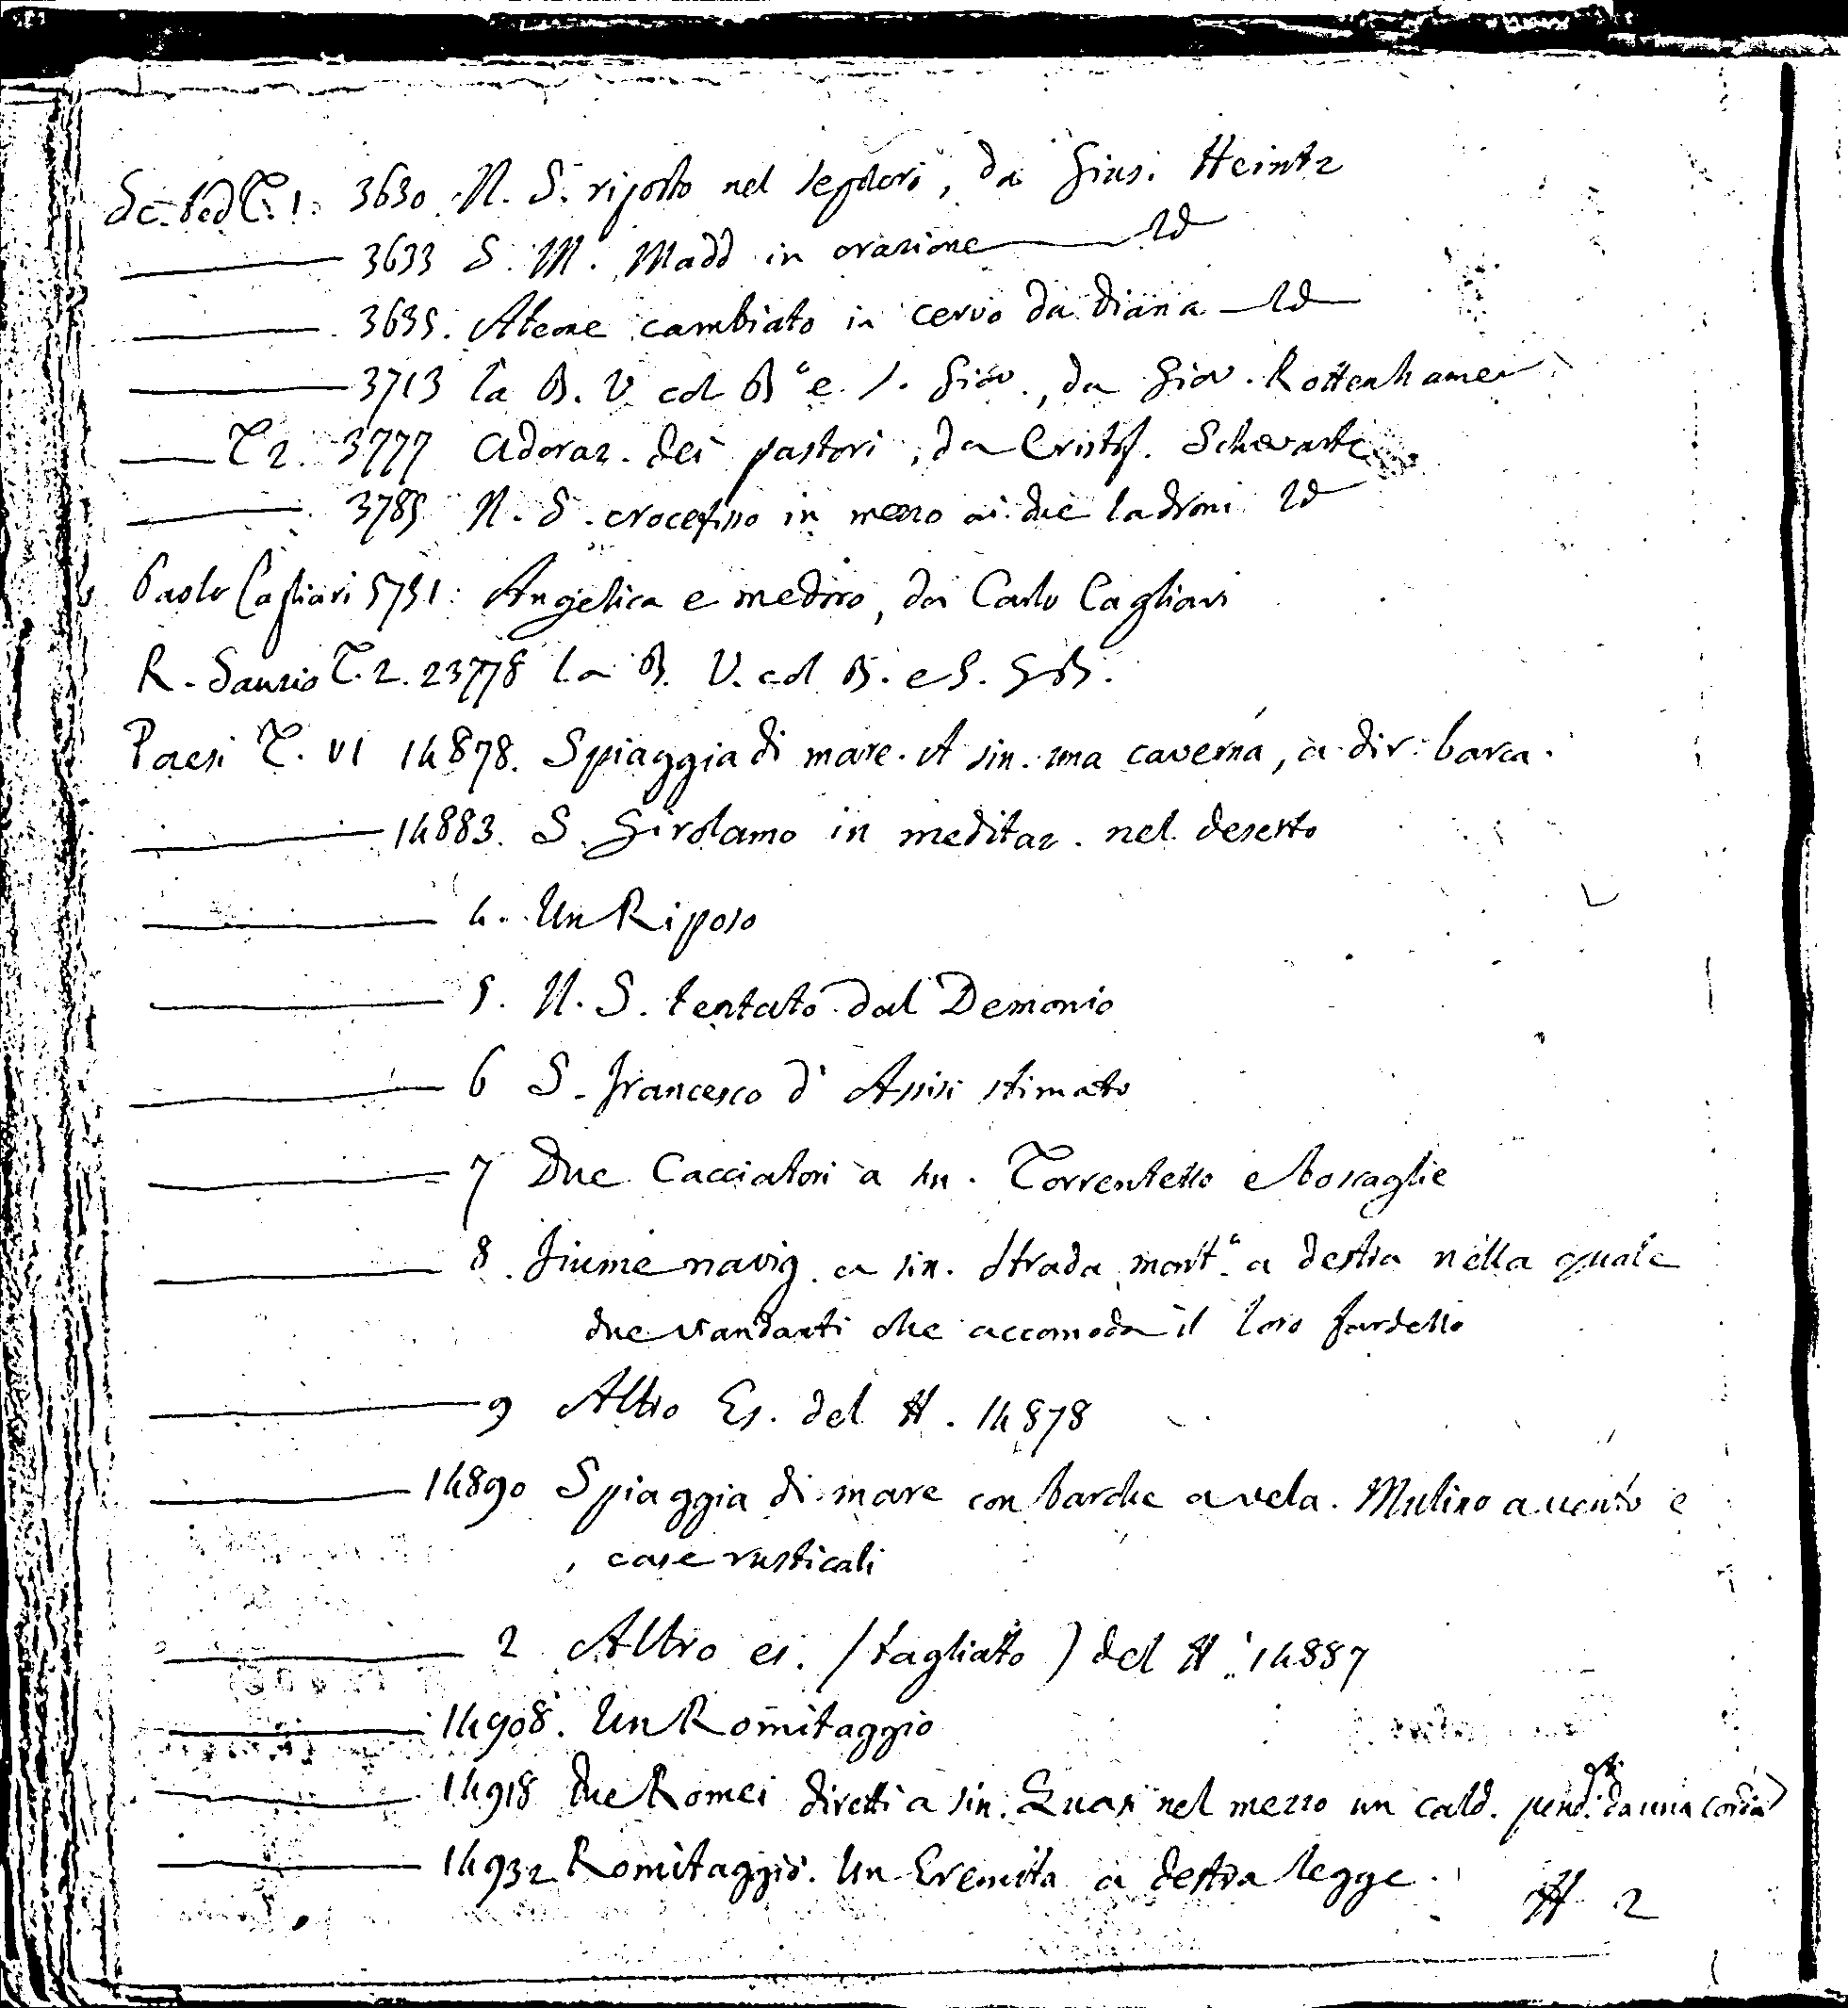 Sc. Ted T. 1. 3630. N. S. riposto nel sepolcro, da Gius. Heintz
3633 S. M. Madd in orazione Id
3635. Ateone cambiato in cervo da Diana Id
3713 la B. V. col Bº e S. Giov., da Giov. Rottenhamer
T 2. 3777 Adoraz. dei pastori, da Cristof. Schwartz
3785 N. S. crocefisso in mezzo ai due ladroni Id
Paolo Cagliari 5751: Angelica e medoro, da Carlo Cagliari
R. Sanzio T. 2. 23778 la B. V. col B. e S. GB.
Paesi T. VI 14878. Spiaggia di mare. A sin. una caverna, a dir. barca.
14883. S. Girolamo in meditaz. nel deserto
4. Un Riposo
5. N. S. tentato dal Demonio
6 S. Francesco d' Assisi stimato
7 Due Cacciatori a sin. Torrentello e boscaglie
8. Fiume navig. a sin. Strada mont.ª a destra nella quale
due viandanti che accomoda il loro fardello
9 Altro Es. del N. 14878
14890 Spiaggia di mare con barche a vela. Mulino a vento e
case rusticali
2 Altro es. (tagliato) del N. 14887
14908. Un Romitaggio
14918 Due Romei diretti a sin. Quasi nel mezzo un cald. pend. da una corda
14932 Romitaggio. Un Eremita a destra legge.
N 2